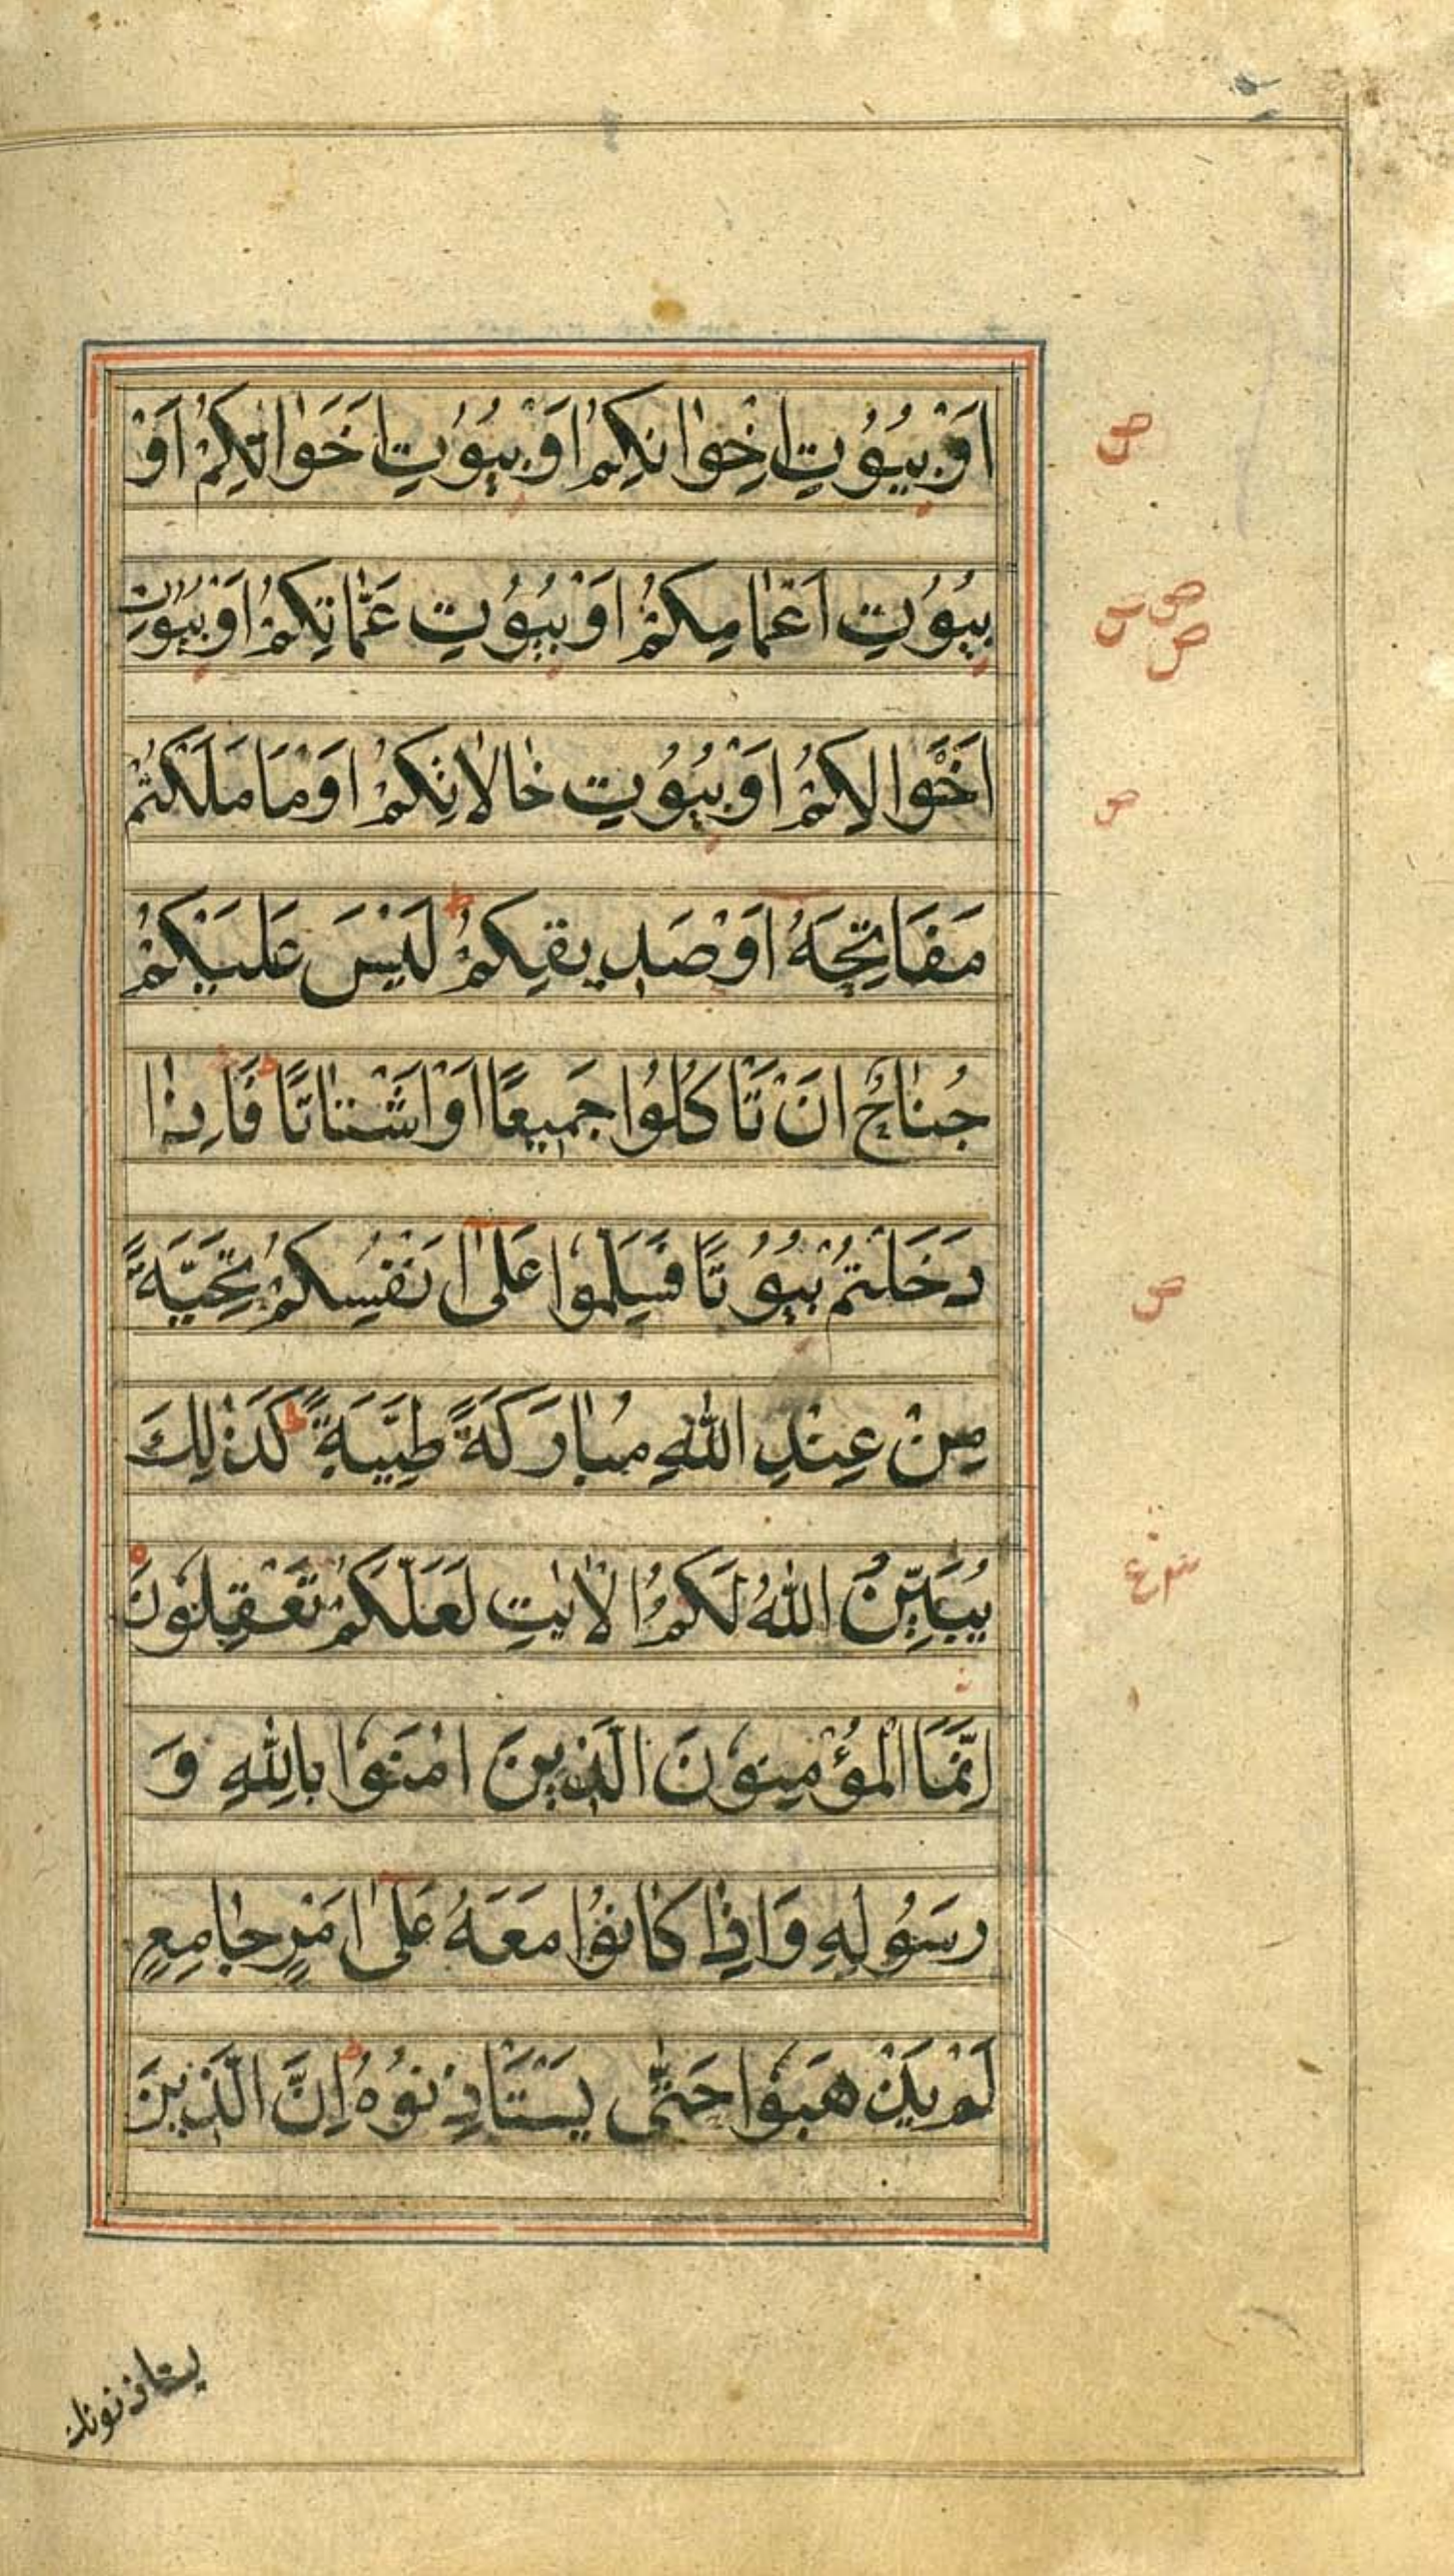 اَوْ بُيُوْتِ اِخْوٰانِكُمْ اَوْ بُيُوْتِ اَخَوٰاتِكُمْ اَوْ
بُيُوْتِ اَعْمٰامِكُمْ اَوْ بُيُوْتِ عَمّٰاتِكُمْ اَوْ بُيُوْتِ
اَخْوٰالِكُمْ اَوْ بُيُوْتِ خٰالاٰتِكُمْ اَوْ مٰا مَلَكْتُمْ
مَفَاتِحَهُ اَوْ صَدِيقِكُمْ لَيْسَ عَلَيْكُمْ
جُنٰاحٌ اَنْ تَاْكُلُوا جَمِيعًا اَوْ اَشْتٰاتًا فَاِذٰا
دَخَلْتُمْ بُيُوْتًا فَسَلِّمُوْا عَلىٰ اَنْفُسِكُمْ تَحِيَّةً
مِنْ عِنْدِ اللّٰهِ مُبٰارَكَةً طَيِّبَةً كَذٰلِكَ
يُبَيِّنُ اللّٰهُ لَكُمُ الْاٰيٰتِ لَعَلَّكُمْ تَعْقِلُوْنَ
اِنَّمَا الْمُؤْمِنُوْنَ الَّذِينَ اٰمَنُوْا بِاللّٰهِ وَ
رَسُوْلِهِ وَاِذٰا كٰانُوْا مَعَهُ عَلىٰ اَمْرٍ جٰامِعٍ
لَمْ يَذْهَبُوْا حَتّٰى يَسْتَاْذِنُوْهُ اِنَّ الَّذِينَ
يستاذنونك
ص
ص
ص
ص
ص
ص